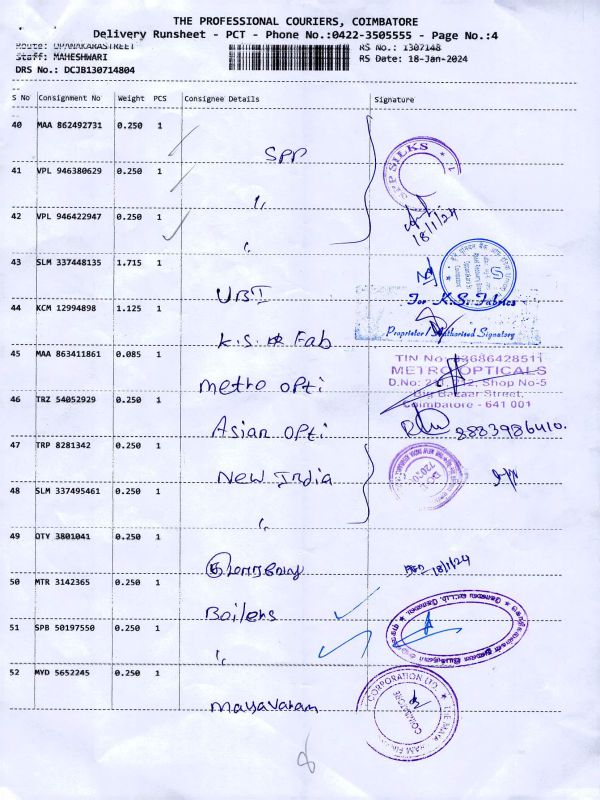 THE PROFESSIONAL COURIERS, COIMBATORE
Delivery Runsheet - PCT - Phone No.:0422-3505555 - Page No.:4
Route: OPANAKARASTREET
RS No.: 1307148
Staff: MAHESHWARI
RS Date: 18-Jan-2024
DRS No.: DCJB130714804
S No Consignment No Weight PCS Consignee Details Signature
40 MAA 862492731 0.250 1
SPP
SPP SILKS
41 VPL 946380629 0.250 1
〃
18/1/24
42 VPL 946422947 0.250 1
〃
43 SLM 337448135 1.715 1
UBI
For K.S. Fabrics
44 KCM 12994898 1.125 1
Proprietor / Authorised Signatory
K.S. Fab
45 MAA 863411861 0.085 1
TIN No: 33686428511
METRO OPTICALS
metro opti
D.No: 211, 212, Shop No-5
46 TRZ 54052929 0.250 1
Big Bazaar Street,
Coimbatore - 641 001
Asian opti
8883986410.
47 TRP 8281342 0.250 1
New India
48 SLM 337495461 0.250 1
〃
49 OTY 3801041 0.250 1
18/1/24
50 MTR 3142365 0.250 1
Boilers
51 SPB 50197550 0.250 1
〃
52 MYD 5652245 0.250 1
CORPORATION LTD.
COIMBATORE
mayavaram